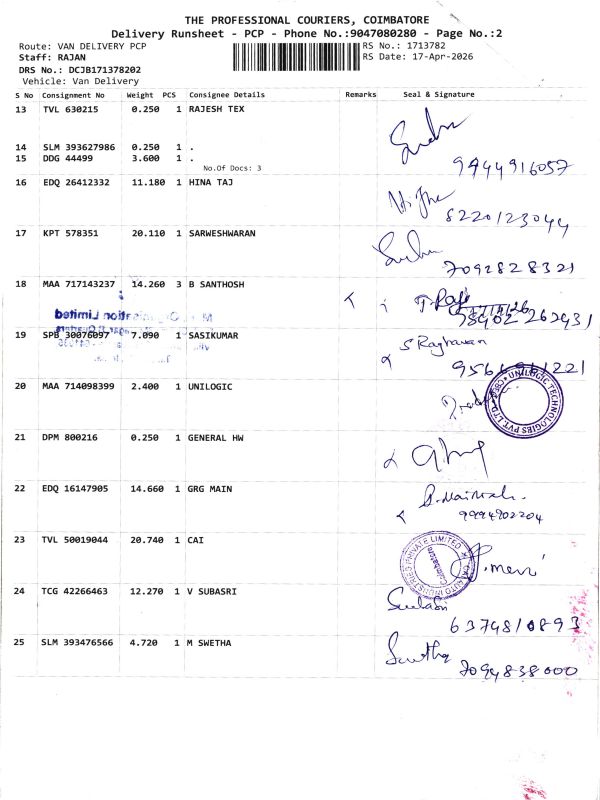 THE PROFESSIONAL COURIERS, COIMBATORE
Delivery Runsheet - PCP - Phone No.:9047080280 - Page No.:2
Route: VAN DELIVERY PCP RS No.: 1713782
Staff: RAJAN RS Date: 17-Apr-2026
DRS No.: DCJB171378202
Vehicle: Van Delivery
S No Consignment No Weight PCS Consignee Details Remarks Seal & Signature
13 TVL 630215 0.250 1 RAJESH TEX
14 SLM 393627986 0.250 1 .
15 DDG 44499 3.600 1 .
9944916057
No.Of Docs: 3
16 EDQ 26412332 11.180 1 HINA TAJ
8220123044
17 KPT 578351 20.110 1 SARWESHWARAN
7092828321
18 MAA 717143237 14.260 3 B SANTHOSH
T. Raja
19 SPB 30076097 7.090 1 SASIKUMAR
S Raghavan
20 MAA 714098399 2.400 1 UNILOGIC
UNILOGIC TECHNOLOGIES PVT. LTD.
21 DPM 800216 0.250 1 GENERAL HW
22 EDQ 16147905 14.660 1 GRG MAIN
9994902204
23 TVL 50019044 20.740 1 CAI
PRIVATE LIMITED
Coimbatore
24 TCG 42266463 12.270 1 V SUBASRI
6374810893
25 SLM 393476566 4.720 1 M SWETHA
Swetha
7094838000